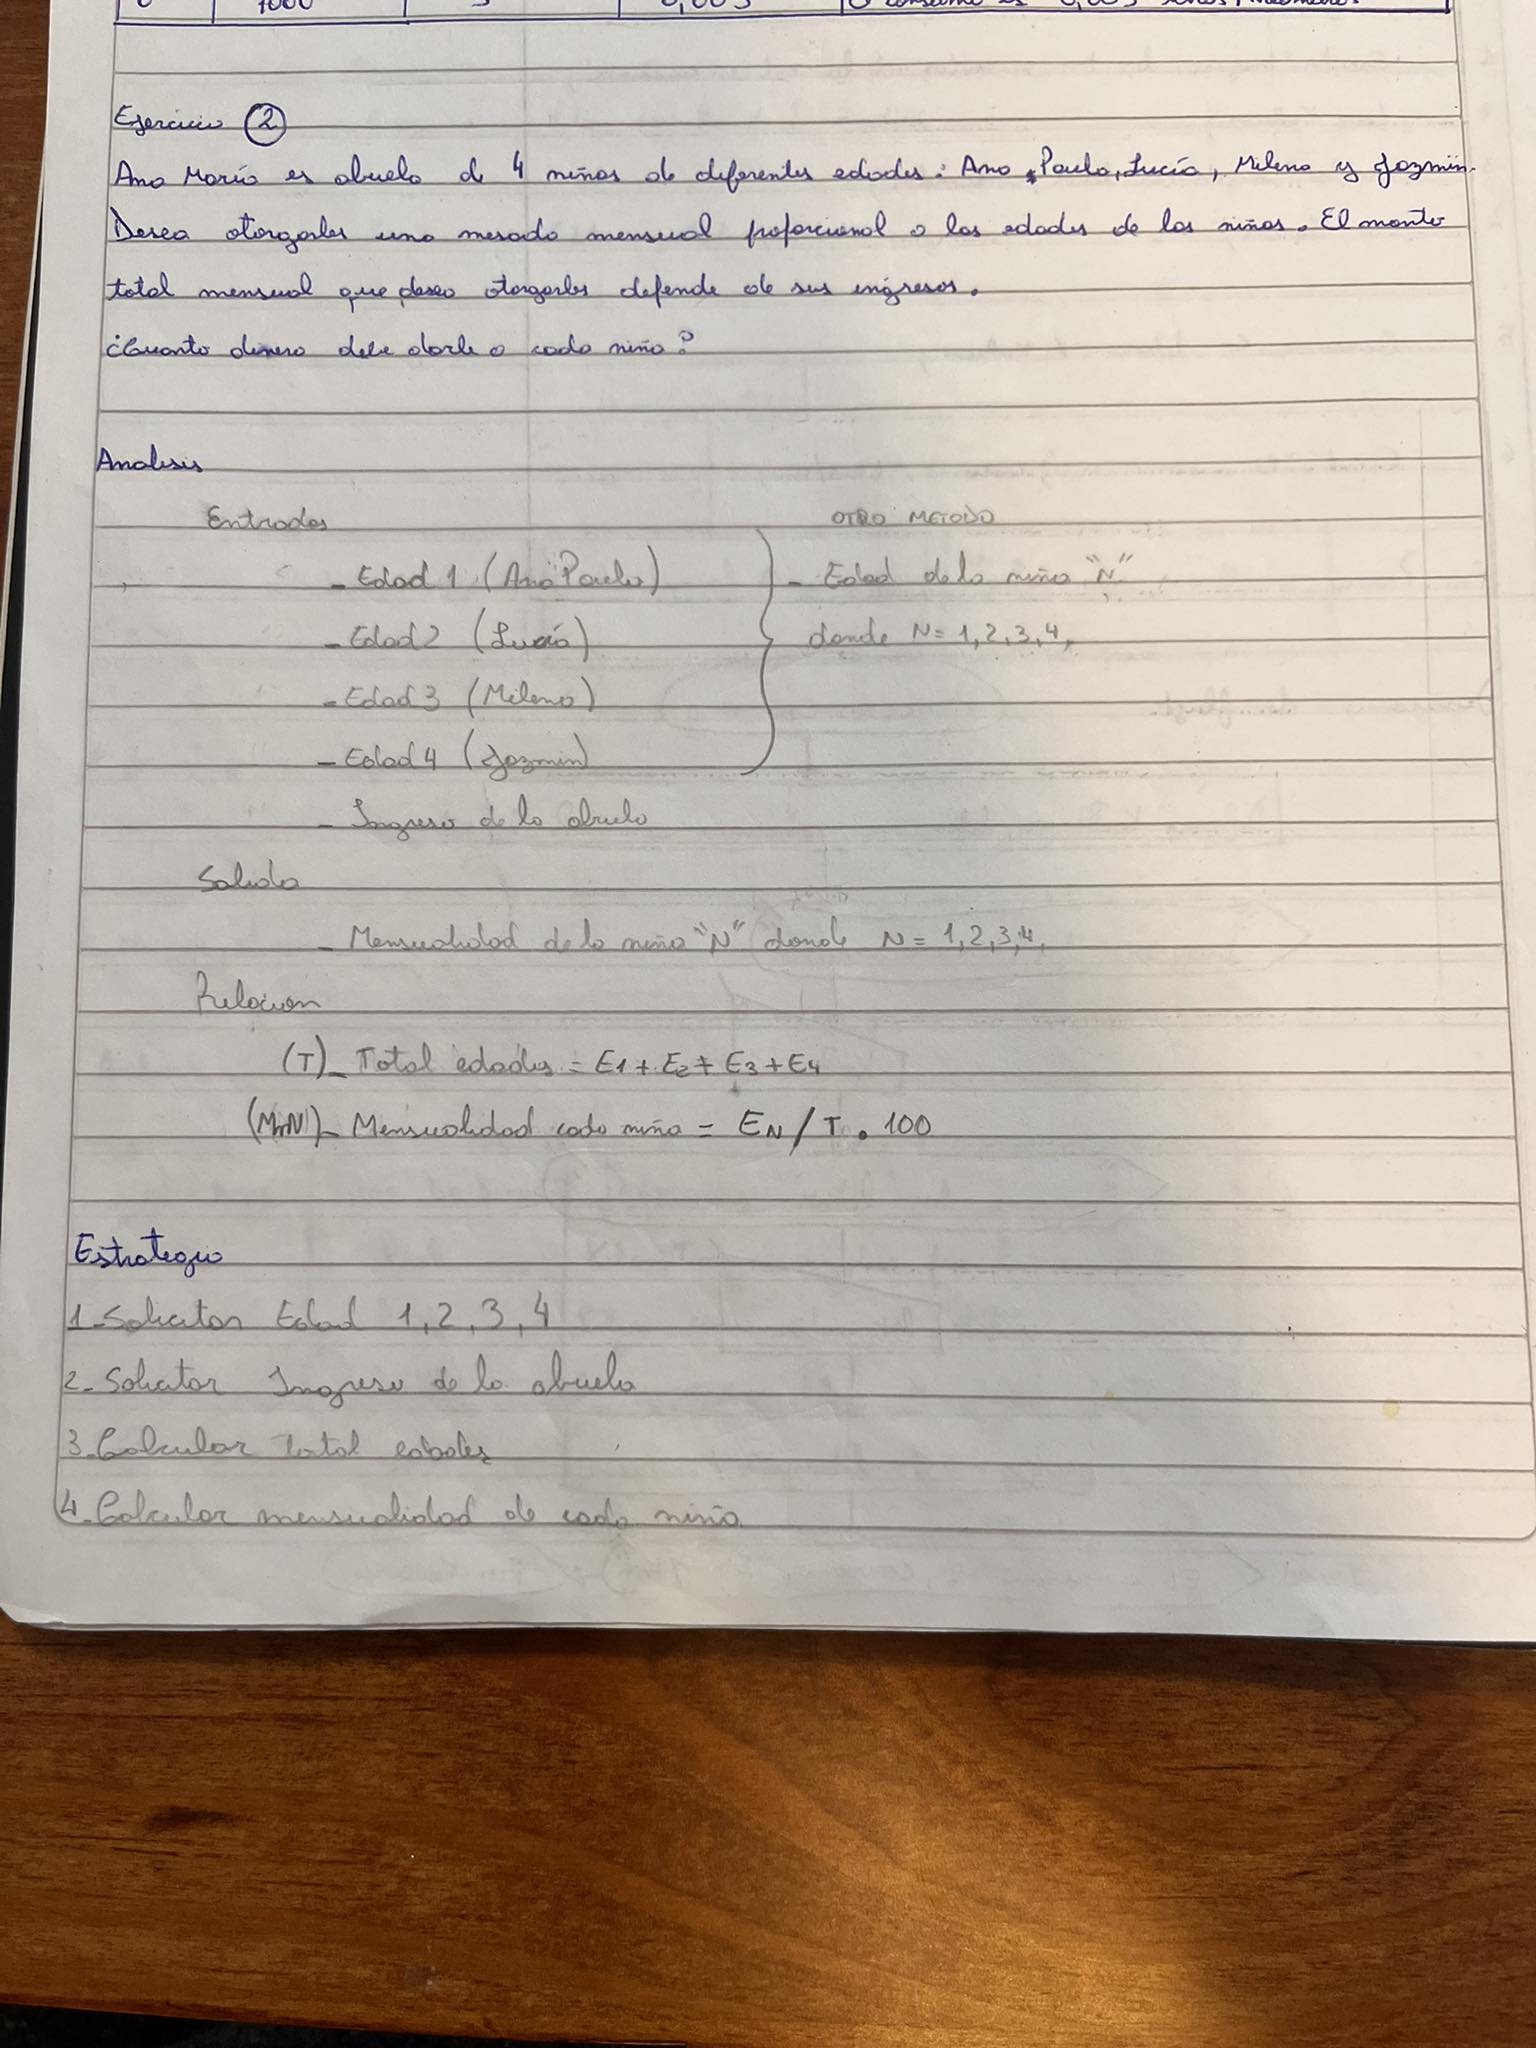 7000 5 0,005 O consumo es 0,005
Ejercicio 2
Ana María es abuela de 4 niñas de diferentes edades: Ana Paula, Lucía, Milena y Jazmin.
Desea otorgarles una mesada mensual proporcional a las edades de las niñas. El monto
total mensual que desea otorgarles depende de sus ingresos.
¿Cuanto dinero debe darle a cada niña?
Analisis
Entradas
- Edad 1 (Ana Paula)
- Edad 2 (Lucía)
- Edad 3 (Milena)
- Edad 4 (Jazmin)
- Ingreso de la abuela
OTRO METODO
- Edad de la niña "N"
donde N = 1, 2, 3, 4,
Salida
- Mensualidad de la niña "N" donde N = 1, 2, 3, 4,
Relacion
(T) - Total edades = E1 + E2 + E3 + E4
(MnN) - Mensualidad cada niña = EN / T . 100
Estrategia
1 - Solicitar Edad 1, 2, 3, 4
2 - Solicitar Ingreso de la abuela
3 - Calcular total edades
4 - Calcular mensualidad de cada niña